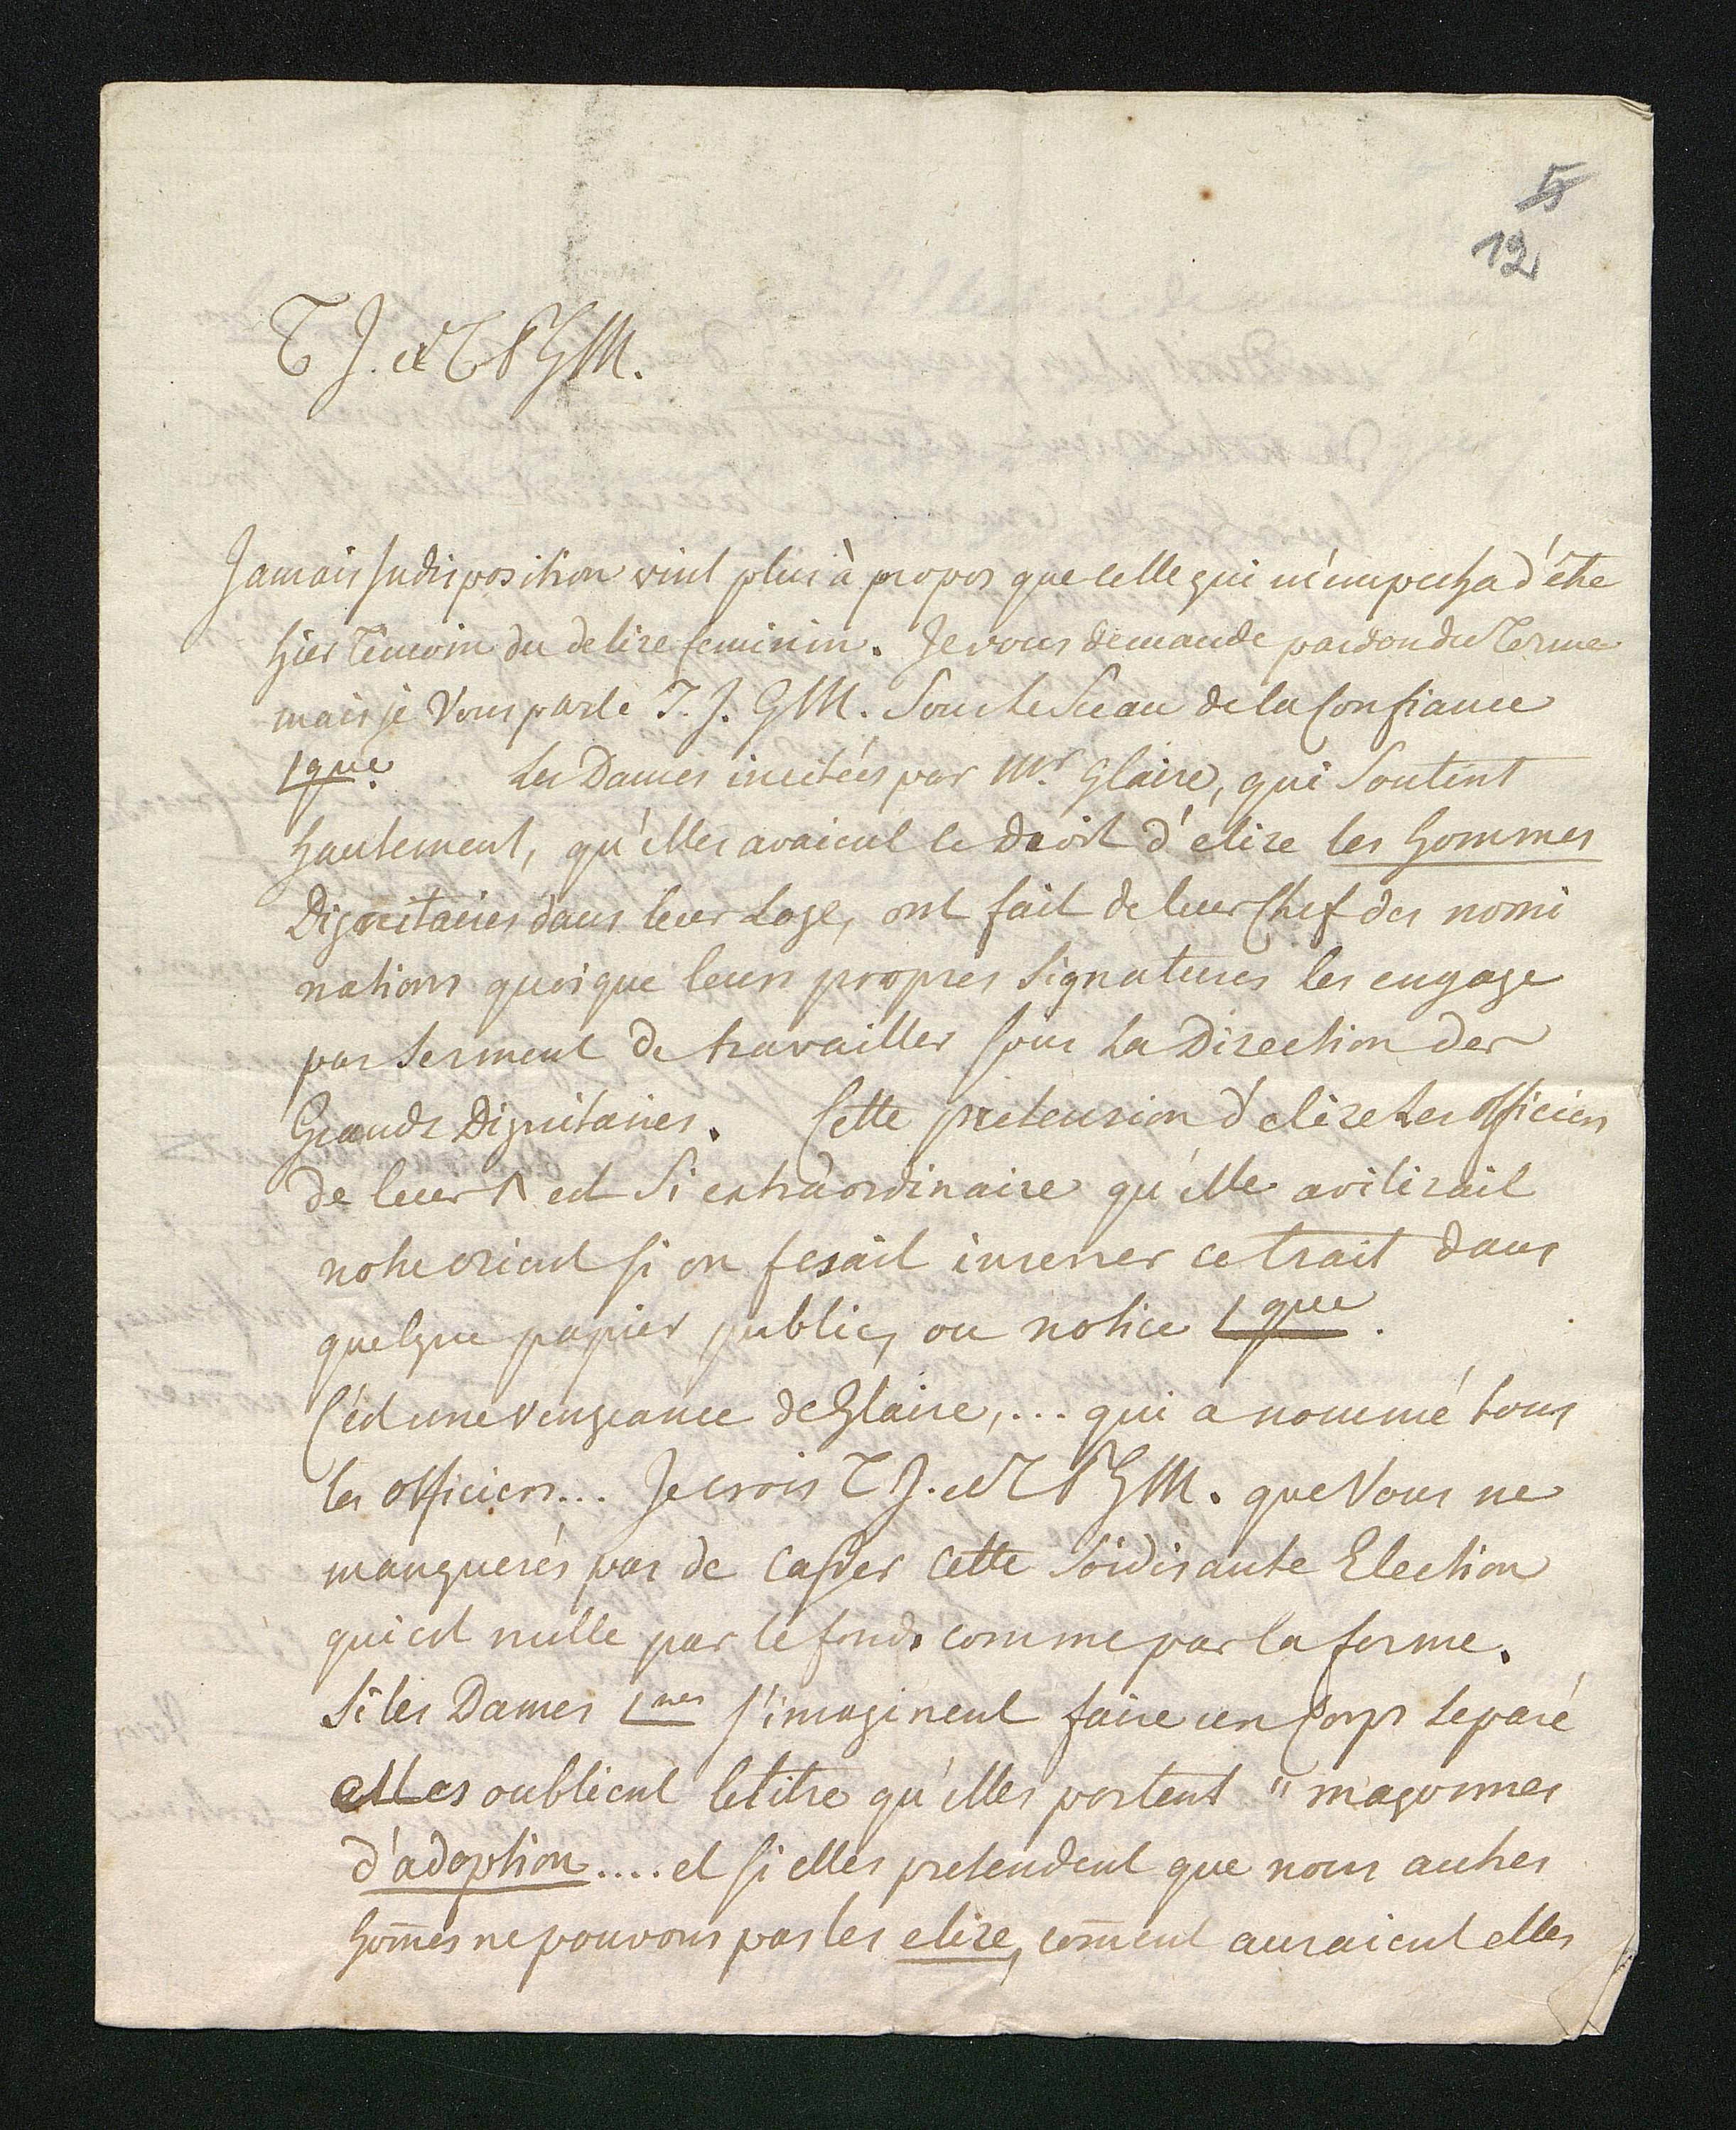 5
12
T J. et T S G M.
Jamais Indisposition vint plus à propos que celle qui m'empecha d'étre
hier témoin du delire feminin. Je vous demande pardon du terme
mais je Vous parle T. J. G M. Sous le Sceau de la Confiance
que. Les Dames incitées par Mr. Glaire, qui Soutint
hautement, qu'elles avaient le droit d'elire les hommes
Dignitaires dans leur Loge, ont fait de leur Chef des nomi
nations quoique leurs propres Signatures les engage
par Serment de travailler sous La Direction des
Grands Dignitaires. Cette pretension d'elire Les officiers
de leur est Si extraordinaire qu'elle avilirait
notre orient si on fesait inserer ce trait dans
quelque papier public, ou notice que.
C'est une vengeance de Glaire,... qui a nommé tous
les officiers... Je crois T J. et T S G M. que Vous ne
manquerés pas de casser cette Soidisante Election
qui est nulle par le fonds comme par la forme.
Si les Dames nes s'imaginent faire un Corps Separé
elles oublient le titre qu'elles portent " maçonnes
d'adoption.... et si elles pretendent que nous autres
hom̄es ne pouvons pas les elire, com̄ent auraient elles